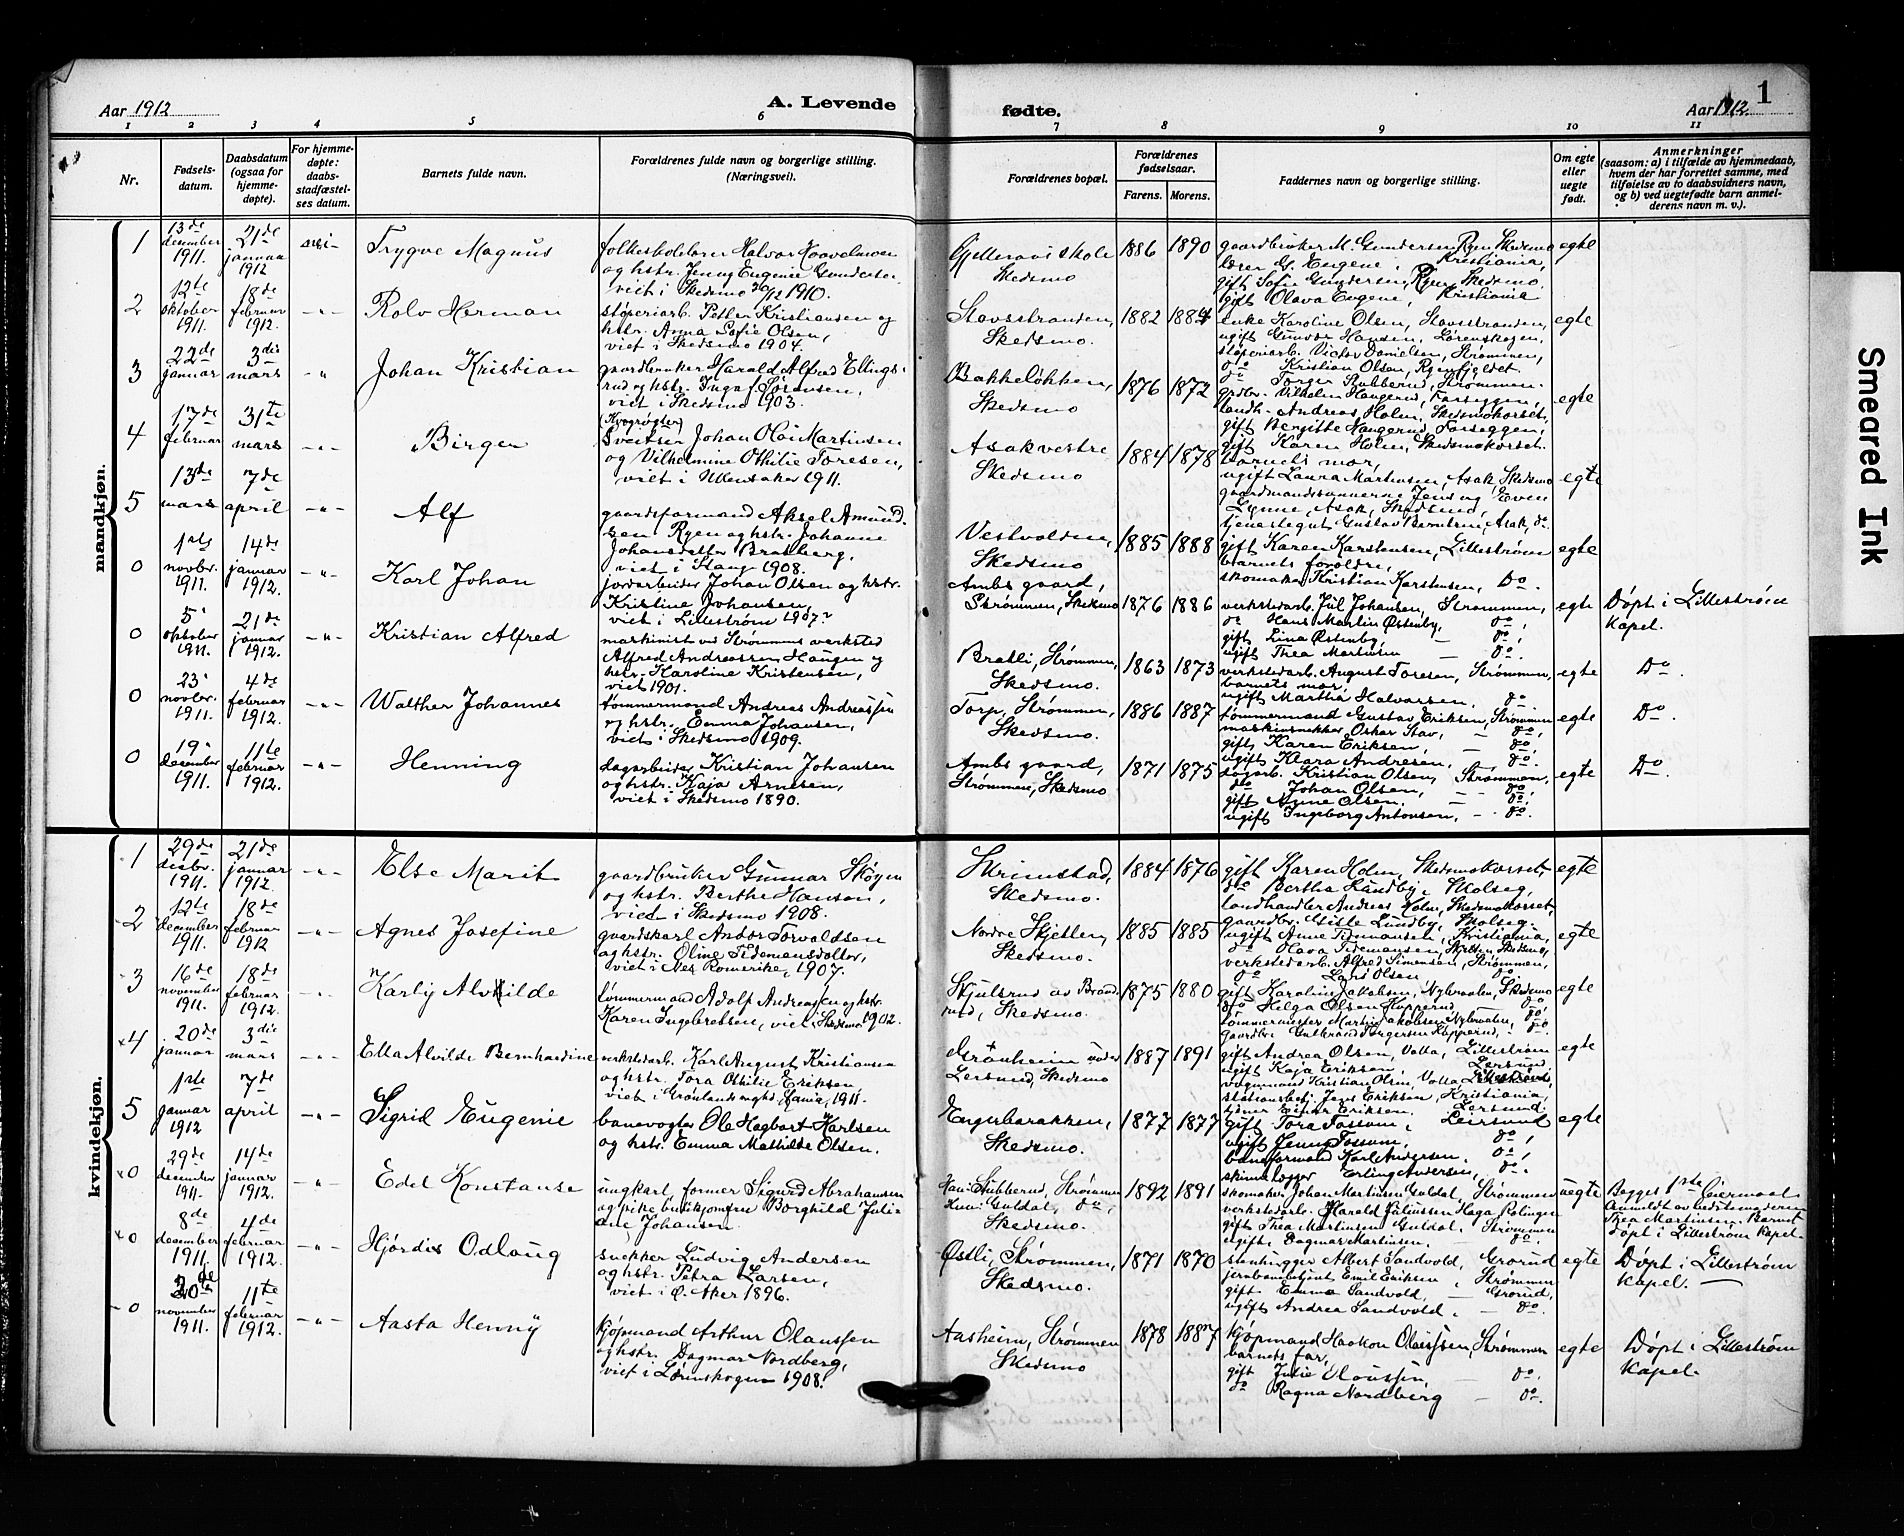 Aar 1912
A. Levende
fødte.
Aar 1912
1
1 2 3 4 5 6 7 8 9 10 11
Nr.
Fødsels-
datum.
Daabsdatum
(ogsaa for
hjemme-
døpte).
For hjemme-
døpte:
daabs-
stadfæstel-
ses datum.
Barnets fulde navn.
Forældrenes fulde navn og borgerlige stilling.
(Næringsvei).
Forældrenes bopæl.
Forældrenes
fødselsaar.
Farens. Morens.
Faddernes navn og borgerlige stilling.
Om egte
eller
uegte
født.
Anmerkninger
(saasom: a) i tilfælde av hjemmedaab,
hvem der har forrettet samme, med
tilføielse av to daabsvidners navn,
og b) ved uegtefødte barn anmel-
derens navn m. v.).
mandkjøn.
1
13de
desember
1911.
21de
januar
1912
Trygve Magnus
folkeskolelærer Halvor Haavelmoen
og hstr. Jenny Eugenie Gunderse
viet i Skedsmo 20/12 1910.
Kjelleravi skole
Skedsmo
1886 1890
gaardbruker M. Gundersen, Ryen Skedsmo
lærer G. Eugene, Kristiania,
gift Sofie Gundersen, Ryen Skedsmo,
gift Olava Eugene, Kristiania
egte
2
12te
oktober
1911.
18de
februar
1912.
Rolv Herman
støperiarb. Petter Kristiansen og
hstr. Anna Sofie Olsen,
viet i Skedsmo 1904.
Stavsstranden,
Skedsmo.
1882 1884
enke Karoline Olsen, Stavsstranden,
ugift Gunvor Hansen, Lørenskogen,
støperiarb. Victor Danielsen, Strømmen,
do Kristian Olsen, Ryenfjeldet.
egte
3
22de
januar
3die
mars
Johan Kristian
gaardbruker Harald Alfred Ellings-
rud og hstr. Inga f. Sørensen,
viet i Skedsmo 1903.
Bakkeløkken,
Skedsmo
1876 1872
do Torger Stubberud, Strømmen.
grdbr. Vilhelm Haugerud, Farseggen,
landh. Andreas Holm, Skedsmokorset,
gift Bergitte Haugerud, Farseggen,
gift Karen Holm, Skedsmokorset.
egte
4
17de
februar
31te
mars
Birger
(Kvægrøgter)
Sveitser Johan Olai Martinsen
og Vilhelmine Othilie Toresen,
viet i Ullensaker 1911.
Asak vestre
Skedsmo
1884 1878
barnets mor,
ugift Laura Martinsen, Asak Skedsmo
gaardmandssønnerne Jens og Even
Lynne, Asak, Skedsmo,
tjenestegut Gustav Berntsen, Asak, do.
egte
5
13de
mars
7de
april
Alf
gaardsformand Aksel Amund-
sen Ryen og hstr. Johanne
Johansdatter Bratberg,
viet i Stange 1908.
Vestvolden,
Skedsmo
1885 1888
gift Karen Karstensen, Lillestrøm
barnets forældre,
skomaker Kristian Karstensen, Do.
egte
0
1ste
novbr.
1911.
14de
januar
1912.
Karl Johan
jordarbeider Johan Olsen og hstr.
Kristine Johansen,
viet i Lillestrøm 1907?
Ambs gaard,
Strømmen, Skedsmo
1876 1886
verkstedarb. Jul Johansen, Strømmen,
do Hans Martin Østenby, do,
gift Lina Østenby, do,
ugift Thea Martinsen — do.
egte
Døpt i Lillestrøm
Kapel.
0
5
oktober
1911.
21de
januar
1912.
Kristian Alfred
maskinist ved Strømmens verksted
Alfred Andreassen Haugen og
hstr. Karoline Kristensen,
viet 1901.
Bratli, Strømmen,
Skedsmo.
1863 1873
verkstedarb. August Toresen, Strømmen,
barnets mor,
ugift Martha Halvorsen. do.
egte
Do.
0
23
novbr.
1911.
4de
februar
1912.
Walther Johannes
tømmermand Andreas Andreassen
og hstr. Emma Johansen,
viet i Skedsmo 1909.
Torp, Strømmen,
Skedsmo.
1886 1887
tømmermand Gustav Eriksen, Strømmen
maskinsnekker Oskar Stav, — do,
gift Karen Eriksen, — do,
ugift Klara Andresen, — do.
egte
Do.
0
19
desember
1911.
11te
februar
1912.
Henning
dagarbeider Kristian Johansen
og hstr. Kaja Arnesen,
viet i Skedsmo 1890.
Ambs gaard,
Strømmen, Skedsmo
1871 1875
dagarb. Kristian Olsen, Strømmen,
do Johan Olsen, — do,
gift Anne Olsen. — do,
ugift Ingeborg Antonsen, — do.
egte
Do.
kvindekjøn.
1
29de
desbr.
1911.
21de
januar
1912.
Else Marit
gaardbruker Gunnar Skøyen
og hstr. Berthe Hansen,
viet i Skedsmo 1908.
Skrimstad,
Skedsmo.
1884 1876
gift Karen Holm, Skedsmokorset,
do Bertha Lundby, Skolseg,
landhandler Andreas Holm, Skedsmokorset,
gaardbr. Lundby, Skolseg.
egte
2
12te
desember
1911.
18de
februar
1912
Agnes Josefine
gaardskarl Andor Torvaldsen
og hstr. Oline Tidemansdotter,
viet i Nes Romerike, 1907.
Nordre Skjetten,
Skedsmo.
1885 1885
ugift Anne Tidemansen, Kristiania,
do Hava Tidemansen, Skjetten, Skedsmo,
verkstedarb. Alfred Simensen, Strømmen,
do Lars Olsen do
egte
3
16de
november
1911.
18de
februar
1912.
Karly Alvhilde
tømmermand Adolf Andreassen og hstr
Karen Ingebretsen, viet i Skedsmo 1902.
Skjulsrud av Brand-
rud, Skedsmo.
1875 1880
gift Karoline Jakobsen, Nybraaten, Skedsmo
do Helga Olsen Kopperud, do,
tømmermester Martin Jakobsen, Nybraaten, do,
gaardbr. Gulbrand Torgersen Kopperud, do.
egte
4
20de
januar
3die
mars
Ella Alvilde Bernhardine
verkstedarb. Karl August Kristiansen
og hstr. Tora Othilie Eriksen,
viet i Grønlands mght, Krania, 1911.
Grønheim under
Leirsund, Skedsmo
1887 1891
gift Andrea Olsen, Volla, Lillestrøm
ugift Kaja Eriksen, Leirsund,
vognmand Kristian Olsen, Volla Lillestrøm,
stationsbetj. Jens Eriksen, Kristiania,
tjener Einar Eriksen. Leirsund.
egte
5
1ste
januar
1912
7de
april
Sigrid Eugenie
banevogter Ole Hagbart Karlsen
og hstr. Emma Mathilde Olsen.
Engebarakken,
Skedsmo.
1877 1877
gift Tora Fossum, Leirsund
ugift Jenny Fossum, do,
baneformand Karl Andersen. do,
skinnelægger Erling Andersen, do.
egte
0
29de
desember
1911.
14de
januar
1912.
Edel Konstanse
ungkarl, former Sigurd Abrahamsen
og pike, butikjomfru Borghild Juli-
ane Johansen.
Han: Stubberud, Strømmen
Hun: Guldal, do,
Skedsmo.
1892 1891
skomaker Johan Martinsen Guldal, Strømmen
verkstedarb. Harald Juliussen Haga Rælingen
gift Thea Martinsen Guldal, Strømmen
ugift. Dagmar Martinsen. do.
uegte
Begges 1ste Leiermaal
Anmeldt av bedstemoderen
Thea Martinsen. Barnet
døpt i Lillestrøm Kapel.
0
8de
desember
1911.
4de
februar
1912.
Hjørdis Odlaug
snekker Ludvig Andersen
og hstr. Petra Larsen,
viet i Ø. Aker 1896.
Østli, Strømmen,
Skedsmo.
1871 1870
stenhugger Albert Sandvold, Grorud
jernbanebetjent Emil Eriksen, Strømmen
gift Emma Sandvold, — Grorud,
ugift Andrea Sandvold. — do.
egte
Døpt i Lillestrøm
Kapel. —
0
20de
november
1911.
11te
februar
1912.
Aasta Henny
Kjøpmand Arthur Olaussen
og hstr. Dagmar Nordberg,
viet i Lørenskogen 1908.
Aasheim, Strømmen
Skedsmo
1878 1887
Kjøpmand Haakon Olaussen, Strømmen
barnets far,
gift Julie Olaussen, — do,
do Ragna Nordberg — do.
egte
Døpt i Lillestrøm
Kapel.
Smeared Ink